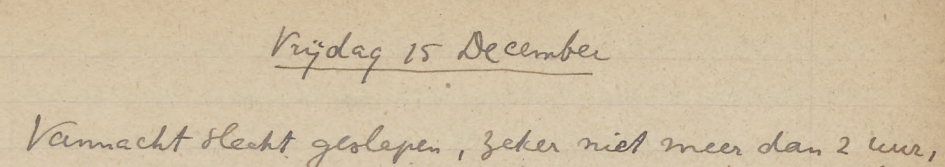 Vrijdag 15 December
Vannacht slecht geslapen, zeker niet meer dan 2 uur,